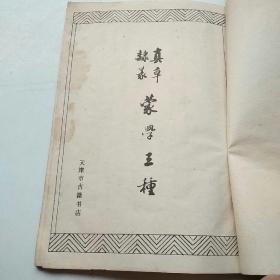 真草
隶篆
蒙學三種
天津市古籍书店